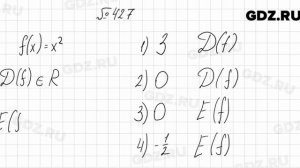 GDZ.RU
№ 427
f(x) = x²
D(f) ∈ R
E(f
1) 3 D(f)
2) 0 D(f)
3) 0 E(f)
4) -1/2 E(f)